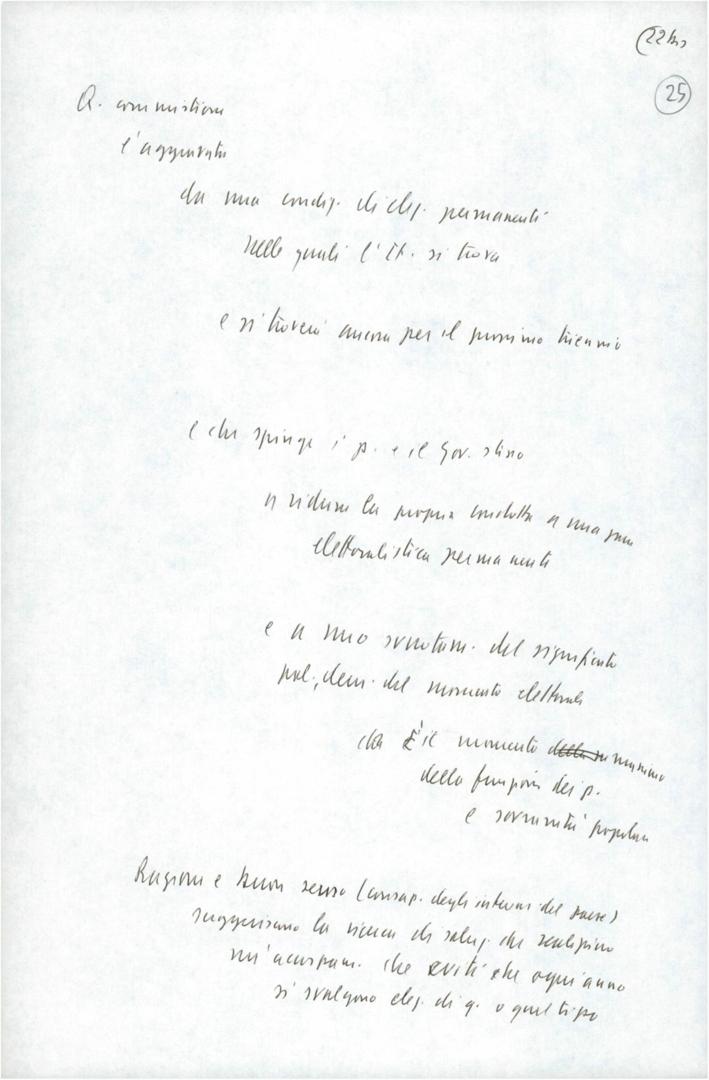 (22 bis
25
Q. commistione
è aggravata
da una condiz. di elez. permanenti
nelle quali l'It. si trova
e si troverà ancora per il prossimo triennio
e che spinge i p. e il Gov. stesso
a ridurre la propria condotta a una gara
elettoralistica permanente
e a uno svuotam. del significato
pol., dem. del momento elettorale
che è il momento della su massimo
della funzione dei p.
e sovranità popolare
Ragione e buon senso (consap. degli interessi del paese)
suggeriscono la ricerca di soluz. che realizzino
un' accorpam. che eviti che ogni anno
si svolgono elez. di q. o quel tipo